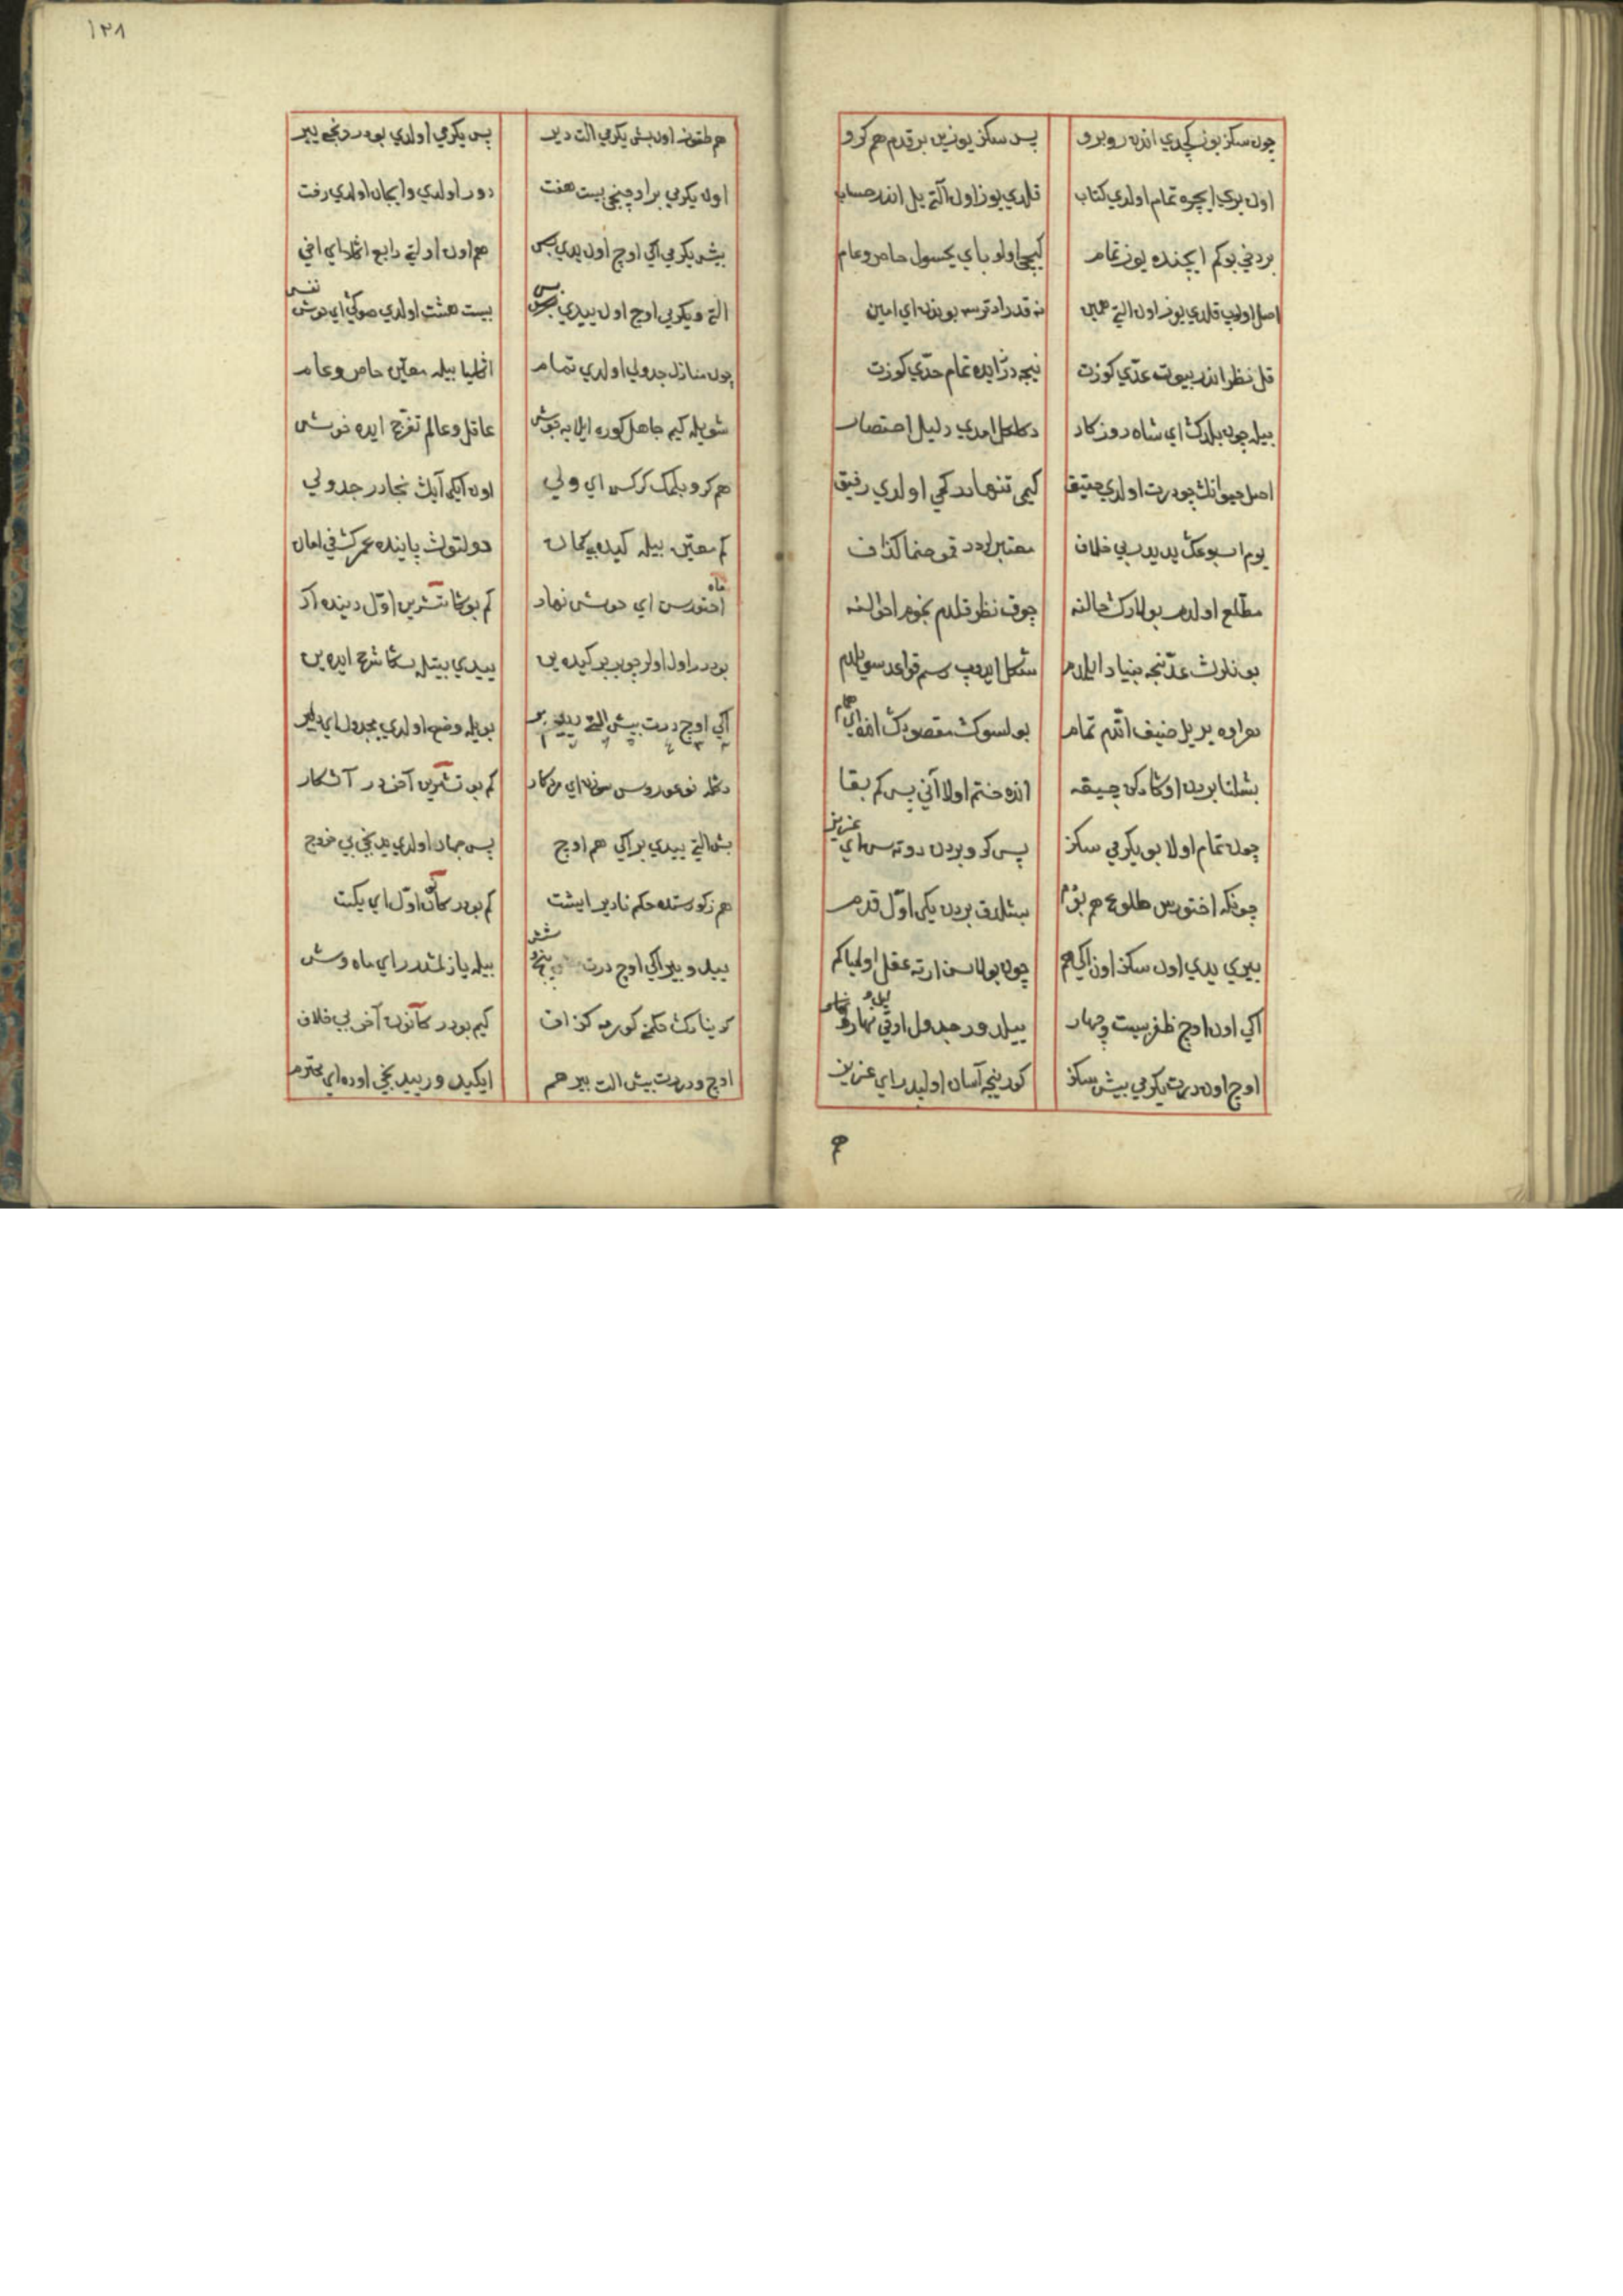 چون سکز یوز کچدي اندن روبرو
پس سکز یوزین بر قدم هم کرو
اون بري ایچره تمام اولدي کتاب
قلدي یوز اون آلتي یل اندر حساب
بردخي بوکم ایچنده یوز تمام
کیجي اولو باي یخسول خاص و عام
اصل اولوب قلدي یوز اون التي همین
نه قدر ارتورسه بوندن اي امین
قل نظر اندر بیوت عدّي کوزت
نیجه در زایده تمام حدّي کوزت
بیله چون بلدك اي شاه روزکار
دکلکل امدي دلیل اختصار
اصل جیو انك چو درت اولدي حقیق
کیمي تنهادر کمي اولدي رفیق
یوم اسبوعك یدیدر بي خلاف
معتبر اودر قمو
مطّلع اولدم بولارك حالنه
چوق نظر قلدم نجوم احوالنه
بونلارك عدّنجه بنیاد ایلدم
شکل ایدوب رسم قواعد سویلدم
بو اراده بر یل ضیف اتدم تمام
بولسوك مقصودك اي همام
بشلنا بردن اوکا دکن چیقه
انده ختم اولا آني پس کم بقا
چون تمام اولا بو یکرمي سکز
پس کرو بردن دوته سن اي عزیز
چونکه اختورس طلوع هم بقرم
بشلدق بردن یکي اوّل قدم
بیري یدي اون سکز اون اکي هم
چون بولاسن ارته عقل اولیا کم
اکي اون اوج ظفر بیست و چهار
بیلدور جدول اوقي لیل و نهار
اوج اون درت یکرمي بیش سکز
کورینجه آسان اولیدر اي عزیز
هم
١٢٨
هم طقوز اون بش یکرمي الت دیر
پس یکرمي اولدي بودر دنجي بیر
اون یکرمي بر اوچنجي بیست هفت
دور اولدي و ایجان اولدي رفت
بیش یکرمي اکي اوج اون یدي بس
هم اون اولتي رابع اي اخي
التي و یکرمي اوج اول ییدي بس
بیست هشت اولدي صوکي اي خوش نفس
چون منازل جدولي اولدي تمام
اکلیا بیله معیّن خاص و عام
شویله کیم جاهل کوره ایلایه جوش
عاقل و عالم تفرّج ایده خوش
هم کرو بلمك کرکسن اي ولي
اون ایکي آیك نجادر جدولي
کم معیّن بیله کیده بي کمان
دولتوك پاینده عمرك في امان
ماه اختورس اي خوش نهاد
کم بوکا تشرین اوّل دینده اد
بودر اول اولر چو بر بر کیده ین
ییدي بیتله سکا شرح ایده ین
اکي اوج درت بیش التي ییدي بر
بویله وضع اولدي بجدول اي دلیر
دکله نوعوروس سوزن اي مردکار
کم بو تشرین آخردر آشکار
بش التي ییدي بر اکي هم اوج
پس چهار اولدي یدنجي بي خروج
هم زکورستده حکم نادیر ایشت
کم بودر کانون اوّل اي یکیت
ییدي و بیر اکي اوج درت پنج و شش
بیله یازلمشدر اي ماه وش
کوینارك حکمنه کورمه کزاف
کیم بودر کانون آخر بي خلاف
اوج و درت بیش الت بیر هم
ایکیدر و ییدنجي اوده اي محترم